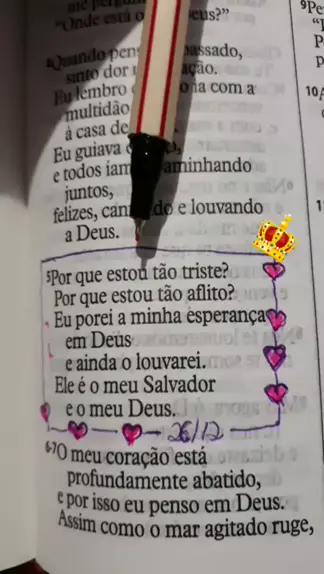 "Onde está o eus?"
⁴Quando pen passado,
sinto dor ação.
Eu lembro ia com a
multidão
à casa de
Eu guiava
e todos iam aminhando
juntos,
felizes, can do e louvando
a Deus.
⁵Por que estou tão triste?
Por que estou tão aflito?
Eu porei a minha esperança
em Deus
e ainda o louvarei.
Ele é o meu Salvador
e o meu Deus.
26/12
⁶⁻⁷O meu coração está
profundamente abatido,
e por isso eu penso em Deus.
Assim como o mar agitado ruge,
⁹Pe
10